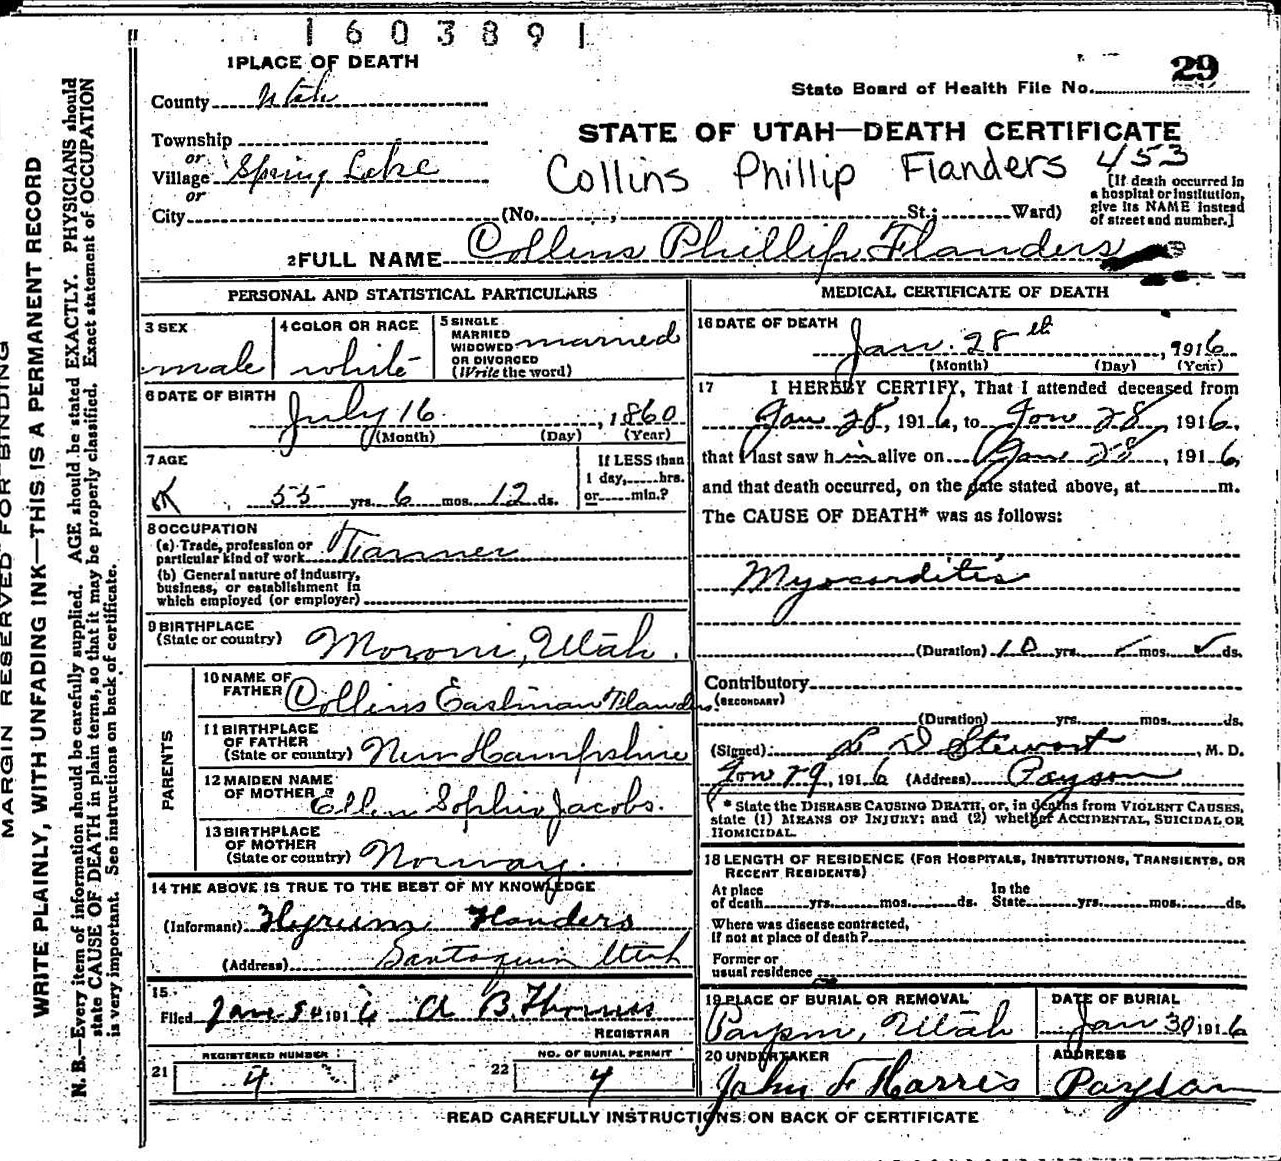 1603891
1 PLACE OF DEATH
29
State Board of Health File No.
County Utah
STATE OF UTAH—DEATH CERTIFICATE
Township
or
Village Spring Lake
Collins Phillip Flanders 453
or
[If death occurred in
a hospital or institution,
give its NAME instead
of street and number.]
City (No. , St.; Ward)
2 FULL NAME Collins Phillip Flanders
PERSONAL AND STATISTICAL PARTICULARS
3 SEX
male
4 COLOR OR RACE
white
5 SINGLE
MARRIED
WIDOWED
OR DIVORCED
(Write the word)
married
6 DATE OF BIRTH
July 16 , 1860
(Month) (Day) (Year)
7 AGE
55 yrs. 6 mos. 12 ds.
If LESS than
1 day, hrs.
or min.?
8 OCCUPATION
(a) Trade, profession or
particular kind of work Farmer
(b) General nature of industry,
business, or establishment in
which employed (or employer)
9 BIRTHPLACE
(State or country) Moroni, Utah.
PARENTS
10 NAME OF
FATHER Collins Eastman Flanders
11 BIRTHPLACE
OF FATHER
(State or country) New Hampshire
12 MAIDEN NAME
OF MOTHER Ellen Sophia Jacobs.
13 BIRTHPLACE
OF MOTHER
(State or country) Norway.
14 THE ABOVE IS TRUE TO THE BEST OF MY KNOWLEDGE
(Informant) Hyrum Flanders
(Address) Santaquin Utah
15
Filed Jan 1916 A B. Thomas
REGISTRAR
21 REGISTERED NUMBER
4
22 NO. OF BURIAL PERMIT
4
MEDICAL CERTIFICATE OF DEATH
16 DATE OF DEATH
Jan. 28th , 1916
(Month) (Day) (Year)
17 I HEREBY CERTIFY, That I attended deceased from
Jan 28, 1916, to Jan 28, 1916,
that I last saw him alive on Jan 28, 1916,
and that death occurred, on the date stated above, at m.
The CAUSE OF DEATH* was as follows:
Myocarditis
(Duration) 10 yrs. mos. ds.
Contributory
(SECONDARY)
(Duration) yrs. mos. ds.
(Signed) L D Stewart, M. D.
Jan 29, 1916 (Address) Payson
* State the DISEASE CAUSING DEATH, or, in deaths from VIOLENT CAUSES,
state (1) MEANS OF INJURY; and (2) whether ACCIDENTAL, SUICIDAL OR
HOMICIDAL.
18 LENGTH OF RESIDENCE (FOR HOSPITALS, INSTITUTIONS, TRANSIENTS, OR
RECENT RESIDENTS)
At place
of death yrs. mos. ds.
In the
State yrs. mos. ds.
Where was disease contracted,
if not at place of death?
Former or
usual residence
19 PLACE OF BURIAL OR REMOVAL
Payson, Utah
DATE OF BURIAL
Jan 30 1916
20 UNDERTAKER
John F Harris
ADDRESS
Payson
READ CAREFULLY INSTRUCTIONS ON BACK OF CERTIFICATE
MARGIN RESERVED FOR BINDING
WRITE PLAINLY, WITH UNFADING INK—THIS IS A PERMANENT RECORD
N. B.—Every item of information should be carefully supplied. AGE should be stated EXACTLY. PHYSICIANS should
state CAUSE OF DEATH in plain terms, so that it may be properly classified. Exact statement of OCCUPATION
is very important. See instructions on back of certificate.